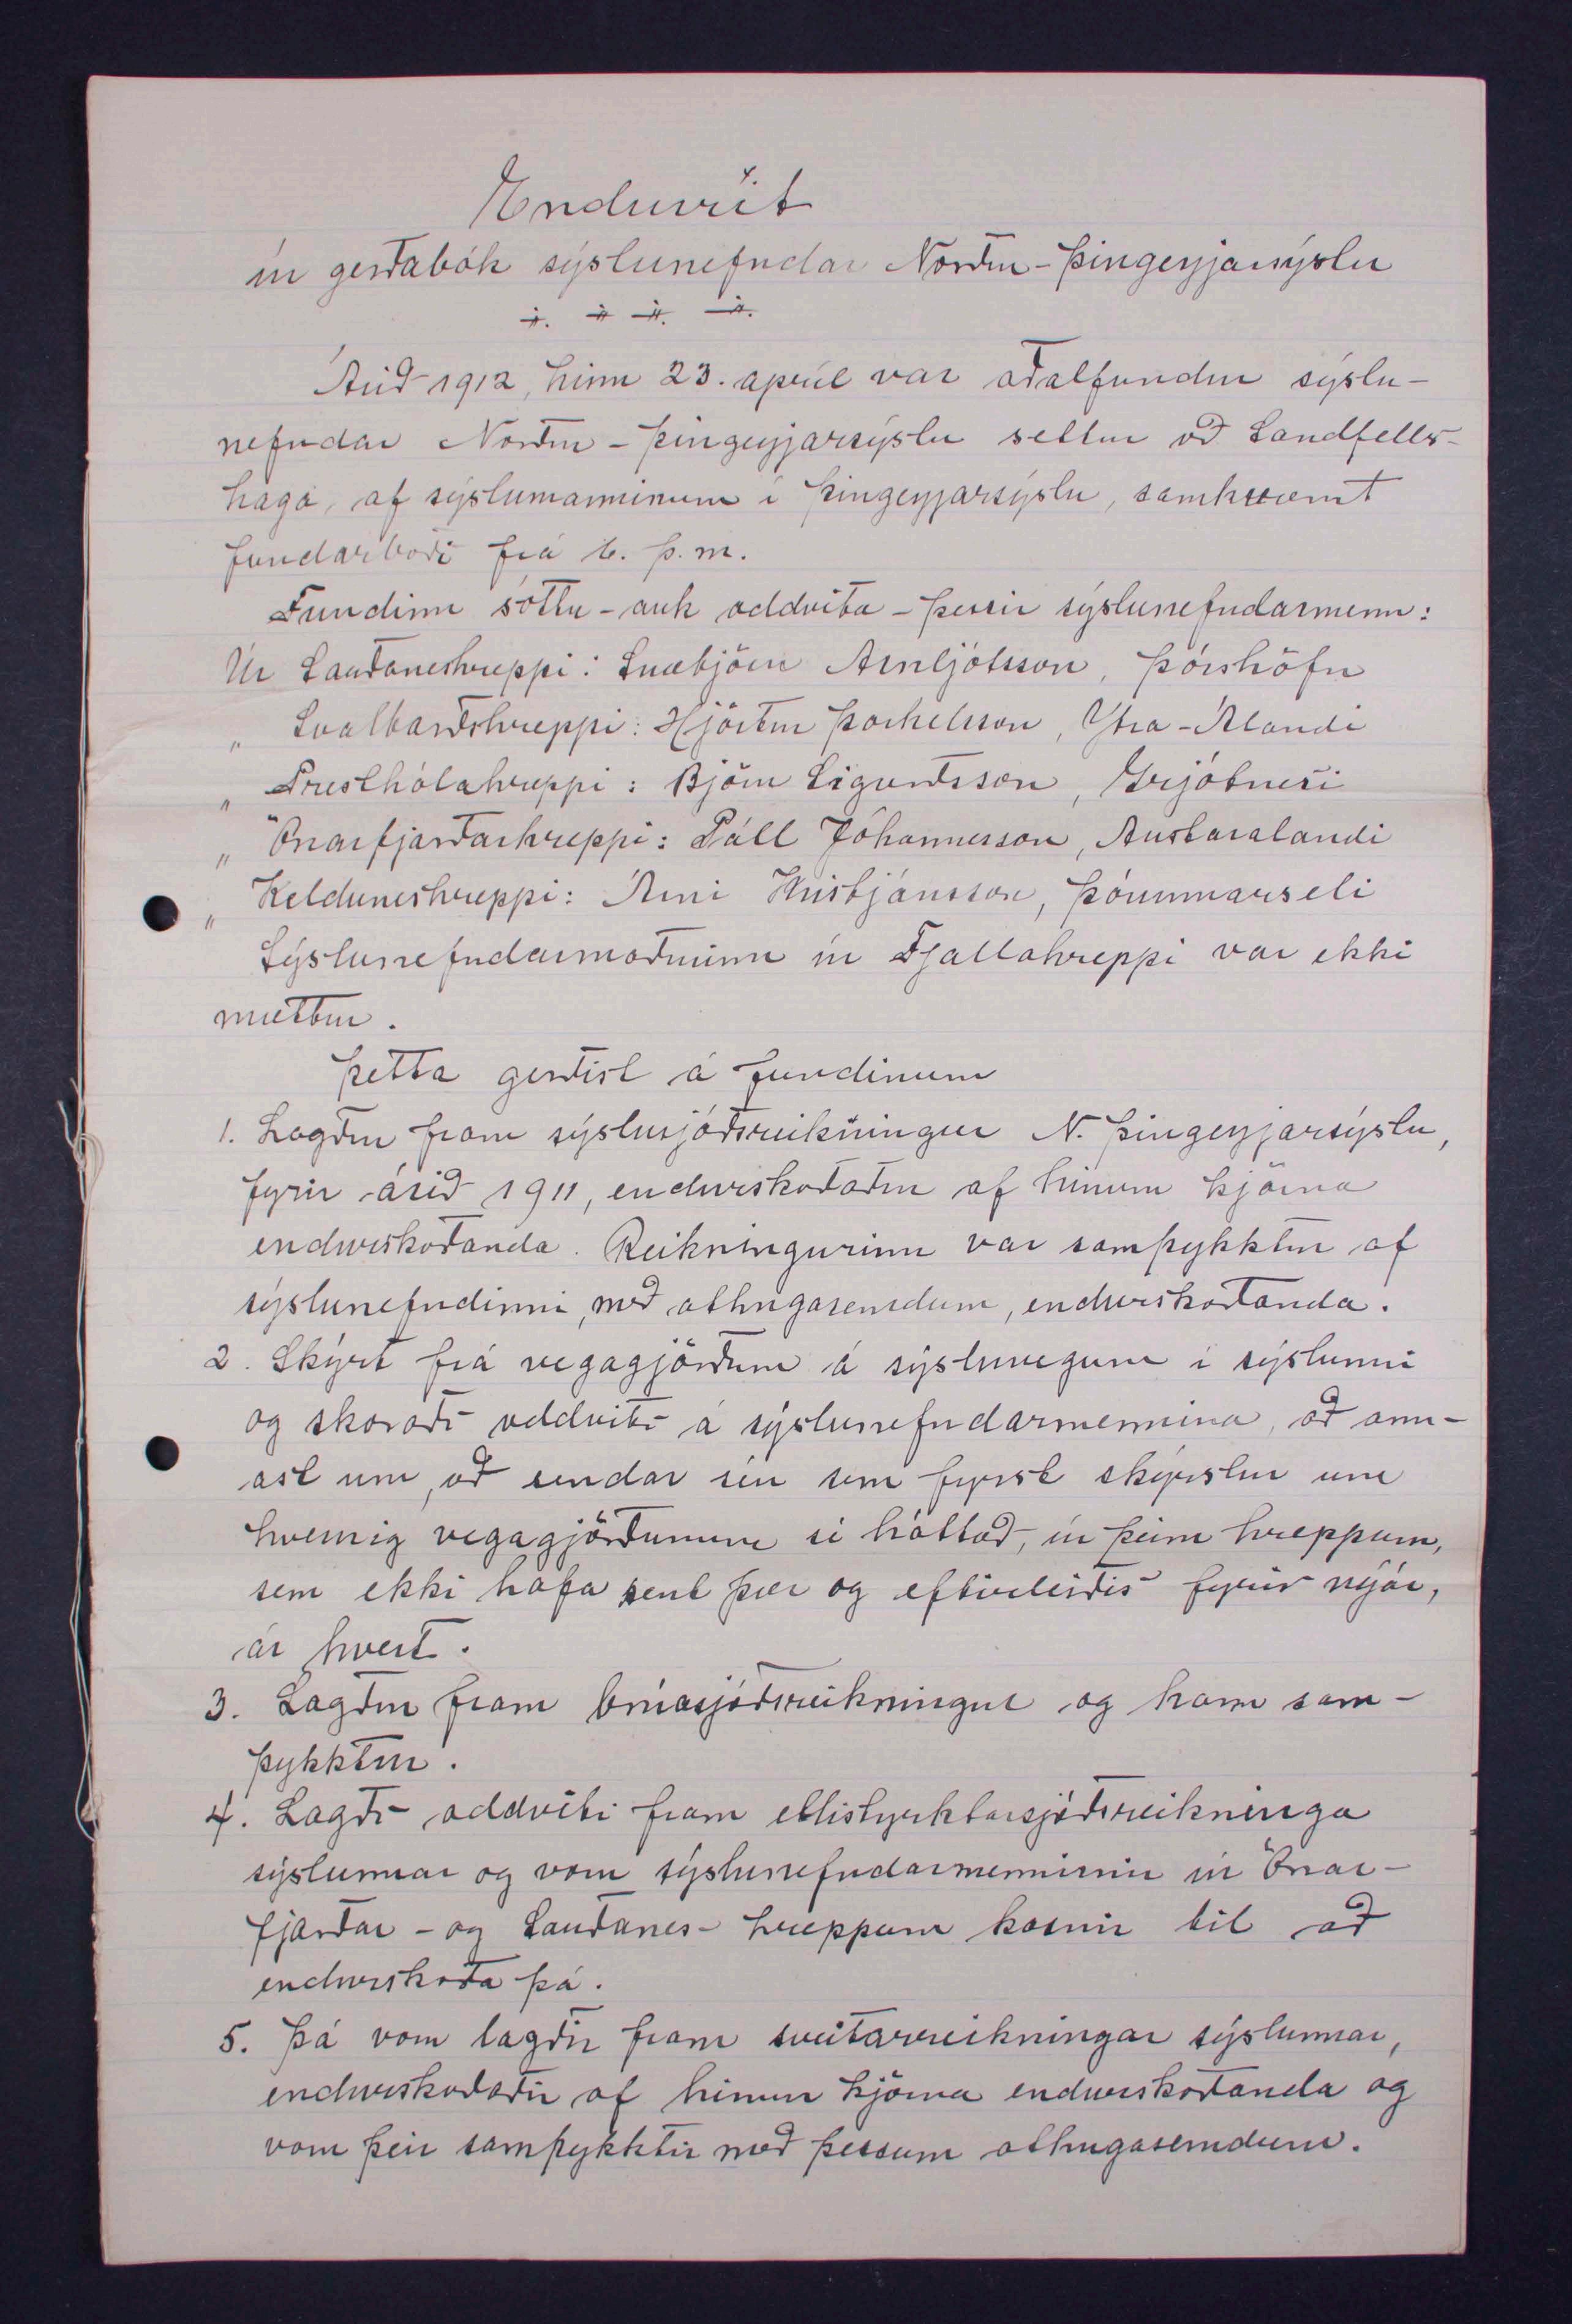 Endurrit
úr gerðabók sýslunefndar Norður-Þingeyjarsýslu
Árið 1912, hinn 23. apríl var aðalfundur sýslu-
nefndar Norður-Þingeyjarsýslu settur að Landfells-
haga, af sýslumanninum í Þingeyjarsýslu, samkvæmt
fundarboði frá 6. þ.m.
Fundinn sóttu - auk oddvita - þessir sýslunefndarmenn:
Úr Sauðaneshreppi: Snæbjörn Arnljótsson, Þórshöfn
„ Svalbarðshreppi: Hjörtur Þorkelsson, Ytra-Álandi
„ Presthólahreppi: Björn Sigurðsson, Grjótnesi
„ Öxarfjarðarhreppi: Páll Jóhannesson, Austaralandi
„ Kelduneshreppi: Árni Kristjánsson, Þórunnarseli
Sýslunefndarmaðurinn úr Fjallahreppi var ekki
mættur.
Þetta gerðist á fundinum
1. Lagður fram sýslusjóðsreikningur N. Þingeyjarsýslu,
fyrir árið 1911, endurskoðaður af hinum kjörna
endurskoðanda. Reikningurinn var samþykktur af
sýslunefndinni, með athugasemdum, endurskoðanda.
2. Skýrt frá vegagjörðum á sýsluvegum í sýslunni
og skoraði oddviti á sýslunefndarmennina, að ann-
ast um, að sendar séu sem fyrst skýrslur um
hvernig vegagjörðunum sé háttað, úr þeim hreppum,
sem ekki hafa sent þær og eftirleiðis fyrir nýár,
ár hvert.
3. Lagður fram brúasjóðsreikningur og hann sam-
þykktur.
4. Lagði oddviti fram ellistyrktarsjóðsreikninga
sýslunnar og voru sýslunefndarmennirnir úr Öxar-
fjarðar- og Sauðanes- hreppum kosnir til að
endurskoða þá.
5. Þá voru lagðir fram sveitarreikningar sýslunnar,
endurskoðaðir af hinum kjörna endurskoðanda og
voru þeir samþykktir með þessum athugasemdum.